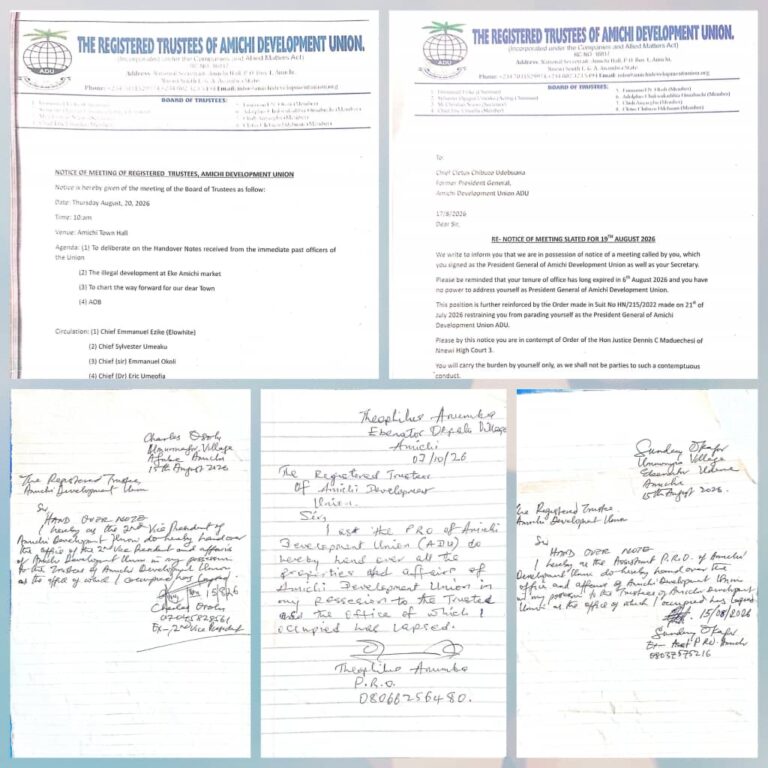 THE REGISTERED TRUSTEES OF AMICHI DEVELOPMENT UNION.
(Incorporated under the Companies and Allied Matters Act)
ADU
BOARD OF TRUSTEES:
NOTICE OF MEETING OF REGISTERED TRUSTEES, AMICHI DEVELOPMENT UNION
Notice is hereby given of the meeting of the Board of Trustees as follow:
Date: Thursday August, 20, 2026
Time: 10:am
Venue: Amichi Town Hall
Agenda: (1) To deliberate on the Handover Notes received from the immediate past officers of
the Union
(2) The illegal development at Eke Amichi market
(3) To chart the way forward for our dear Town
(4) AOB
Circulation: (1) Chief Emmanuel Ezike (Elowhite)
(2) Chief Sylvester Umeaku
(3) Chief (sir) Emmanuel Okoli
(4) Chief (Dr) Eric Umeofia
THE REGISTERED TRUSTEES OF AMICHI DEVELOPMENT UNION.
(Incorporated under the Companies and Allied Matters Act)
ADU
BOARD OF TRUSTEES:
To:
Chief Cletus Chibuzo Udobuana
Former President General,
Amichi Development Union ADU
17/8/2026
Dear Sir,
RE- NOTICE OF MEETING SLATED FOR 19TH AUGUST 2026
We write to inform you that we are in possession of notice of a meeting called by you, which
you signed as the President General of Amichi Development Union as well as your Secretary.
Please be reminded that your tenure of office has long expired in 6th August 2026 and you have
no power to address yourself as President General of Amichi Development Union.
This position is further reinforced by the Order made in Suit No HN/215/2022 made on 21st of
July 2026 restraining you from parading yourself as the President General of Amichi
Development Union ADU.
Please by this notice you are in contempt of Order of the Hon Justice Dennis C Maduechesi of
Nnewi High Court 3.
You will carry the burden by yourself only, as we shall not be parties to such a contemptuous
conduct.
Charles Osoh
Village
Amichi
15th August 2026
The Registered Trustee
Amichi Development Union
Sir
HAND OVER NOTE
I hereby as the 2nd Vice President of
Amichi Development Union do hereby hand over
the office of the 2nd Vice President and affairs
of Amichi Development Union in my possession
to the Trustees of Amichi Development Union
as the office of which I occupied has
Charles
Ex-2nd Vice President
Theophilus Anumba
Ebenator Village
Amichi
07/10/26
The Registered Trustees
Of Amichi Development
Union.
Sir,
I the PRO of Amichi
Development Union (ADU) do
hereby hand over all the
properties and affairs of
Amichi Development Union in
my possession to the Trusted
the Office of which I
occupied has lapsed.
Theophilus Anumba
P.R.O.
08066256480.
Sunday Okafor
Village
Amichi
15th August 2026.
The Registered Trustee
Amichi Development Union
Sir
HAND OVER NOTE
I hereby as the Assistant P.R.O. of Amichi
Development Union do hereby hand over the
office and affairs of Amichi Development Union
in my possession to the Trustees of Amichi Development
Union as the office of which I occupied has
15/08/2026
Sunday Okafor
Ex- Asst P.R.O.
08037575216